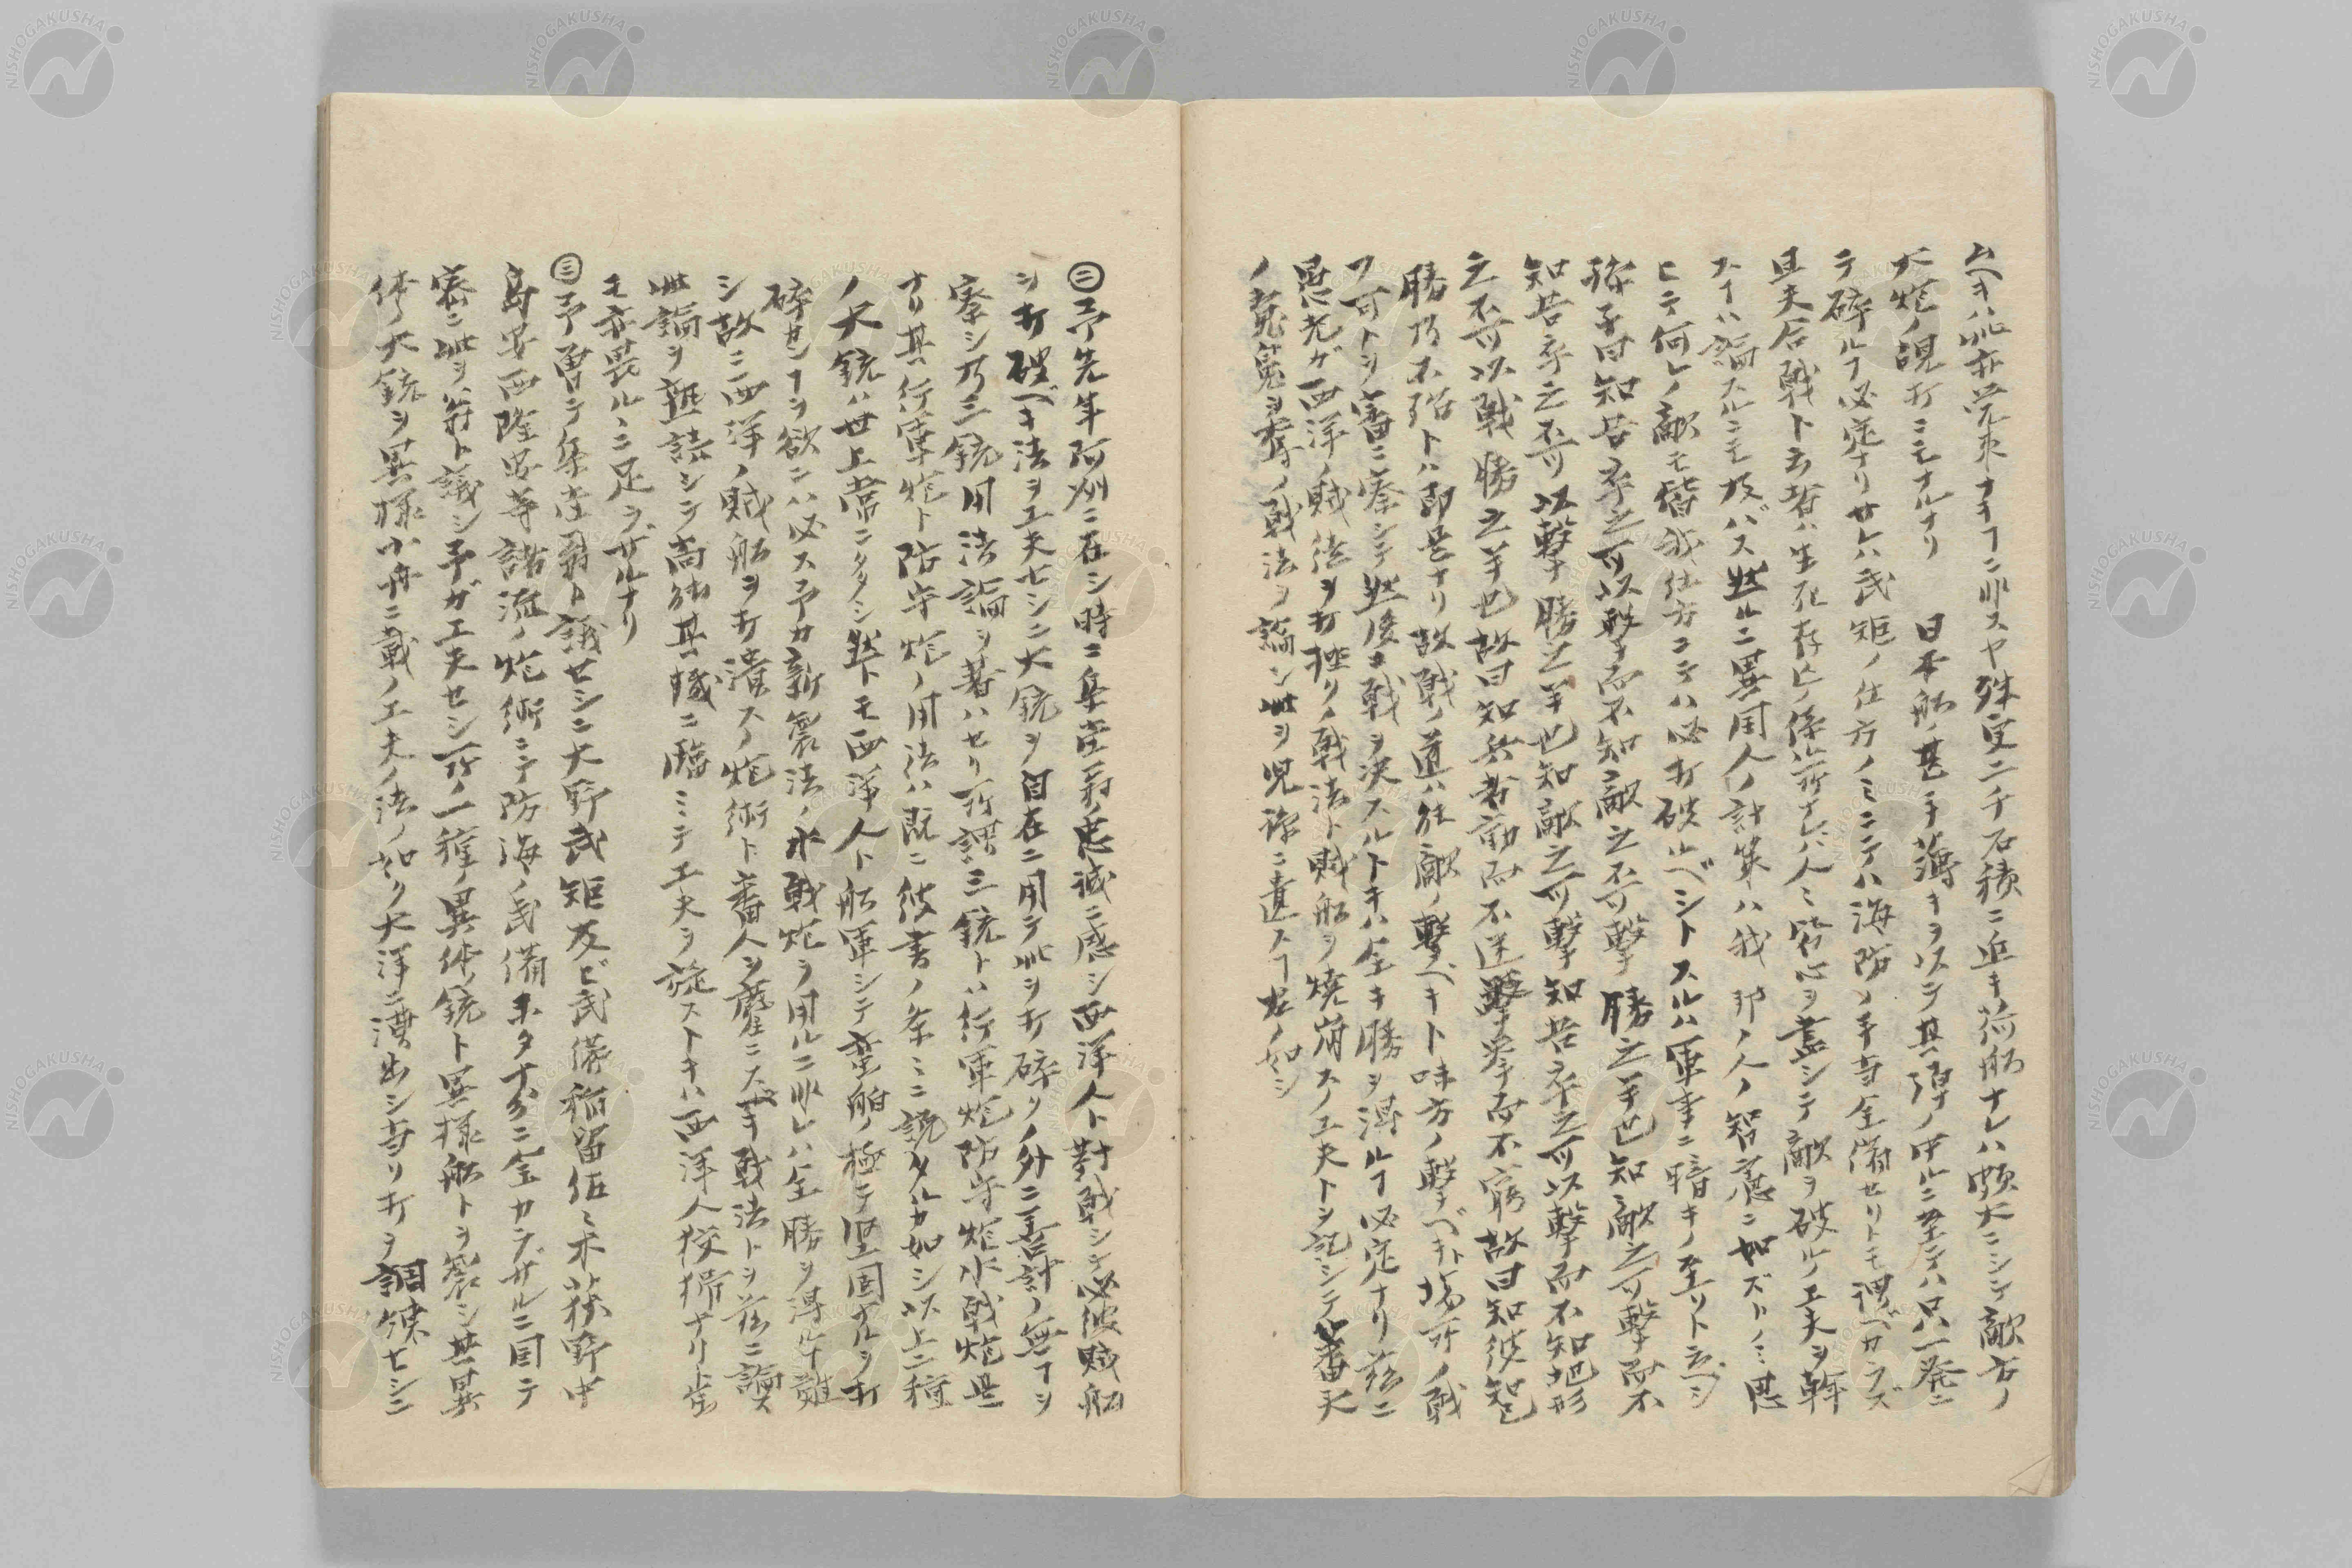 大炮ノ的打ニモナルナリ 日本船ノ甚ダ薄キヲ以テ其弾ノ中ルニ至テハ只一発ニ
テ碎ルヿ必定ナリサレハ武矩ノ仕方ノミニテハ海防ノ手当全備セリトモ謂ベカラズ
且夫合戦ト云者ハ生死存亡ノ係ル所ナレバ人ミ皆心ヲ盡シテ敵ヲ破ルノ工夫ヲ斡
スヿハ論スルニモ及バス然ルニ異国人ノ計策ハ我邦ノ人ノ智慮ニ如ズトノミ思
ヒテ何レノ敵モ皆我仕方ニテハ必打破ルベシトスルハ軍事ニ暗キノ至リト云ベシ
孫子曰知吾卒之可以撃而不知敵之不可撃勝之半也知敵之可撃而不
知吾卒之不可以撃勝之半也知敵之可撃知吾卒之可以撃而不知地形
之不可以戦勝之半也故曰知兵者動而不迷擧而不窮故曰知彼知己
勝乃不殆ト即是ナリ故戦ノ道ハ能敵ノ撃ベキト味方ノ撃ベキト場所ノ戦
フ可トヲ審ニ察シテ然後ニ戦ヲ決スルトキハ全キ勝ヲ得ルヿ必定ナリ茲ニ
愚老ガ西洋ノ賊法ヲ打挫クノ戦法ト賊船ヲ焼崩スノ工夫トヲ記シテ蕃夷
ノ覚魂ヲ奪ノ戦法ヲ論シ此ヲ児孫ニ遺スヿ左ノ如シ
㊁予先年阿州ニ在シ時ニ集堂翁ノ忠誠ニ感シ西洋人ト對戦シテ必彼賊船
ヲ打破ベキ法ヲ工夫セシニ大銃ヲ自在ニ用テ此ヲ打碎クノ外ニ善計ノ無ヿヲ
察シ乃三銃用法論ヲ著ハセリ所謂三銃トハ行軍炮防守炮水戦炮是
ナリ其行軍炮ト防守炮ノ用法ハ既ニ彼書ノ条ミニ説タルカ如シ以上二種
ノ大銃ハ世上常ニタタシ然トモ西洋人ト船軍シテ蛮舶ノ極テ堅固ナルヲ打
碎カンヿヲ欲ニハ必ス予カ新製法ノ水戦炮ヲ用ルニ非レハ全勝ヲ得ルヿ難
シ故ニ西洋ノ賊船ヲ打潰スノ炮術ト蕃人ヲ鏖ニスベキ戦法トヲ茲ニ論ス
此論ヲ熟読シテ尚能其機ニ臨ミテ工夫ヲ旋ストキハ西洋人狡猾ナリト雖
モ亦畏ルヽニ足ラザルナリ
㊂予曽テ集堂翁ト議セシニ大野武矩及ビ武衛稲留伍ミ木荻野中
島安西隆安等諸流ノ炮術ニテ防海ノ武備未タ十分ニ全カラザルニ因テ
密ニ此ヲ翁ト議シ予ガ工夫セシ所ノ一種ノ異体ノ銃ト異様船トヲ製シ其異
体ノ大銃ヲ異様小舟ニ載ノ工夫ノ法ノ如ク大洋ニ漕出シ町打ヲ調練セシニ